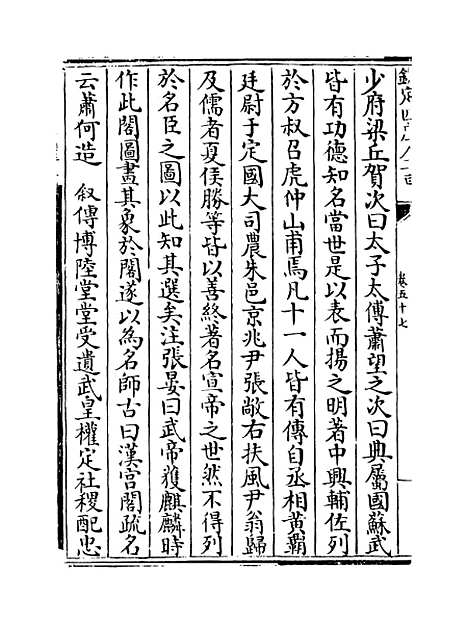 少府梁丘賀次曰太子太傅蕭望之次曰典屬國蘇武
皆有功德知名當世是以表而揚之明著中興輔佐列
於方叔召虎仲山甫焉凡十一人皆有傳自丞相黃霸
廷尉于定國大司農朱邑京兆尹張敞右扶風尹翁歸
及儒者夏侯勝等皆以善終著名宣帝之世然不得列
於名臣之圖以此知其選矣注張晏曰武帝獲麒麟時
作此閣圖畫其象於閣遂以為名師古曰漢宮閣疏名
云蕭何造　叙傳博陸堂堂受遺武皇權定社稷配忠
卷五十七